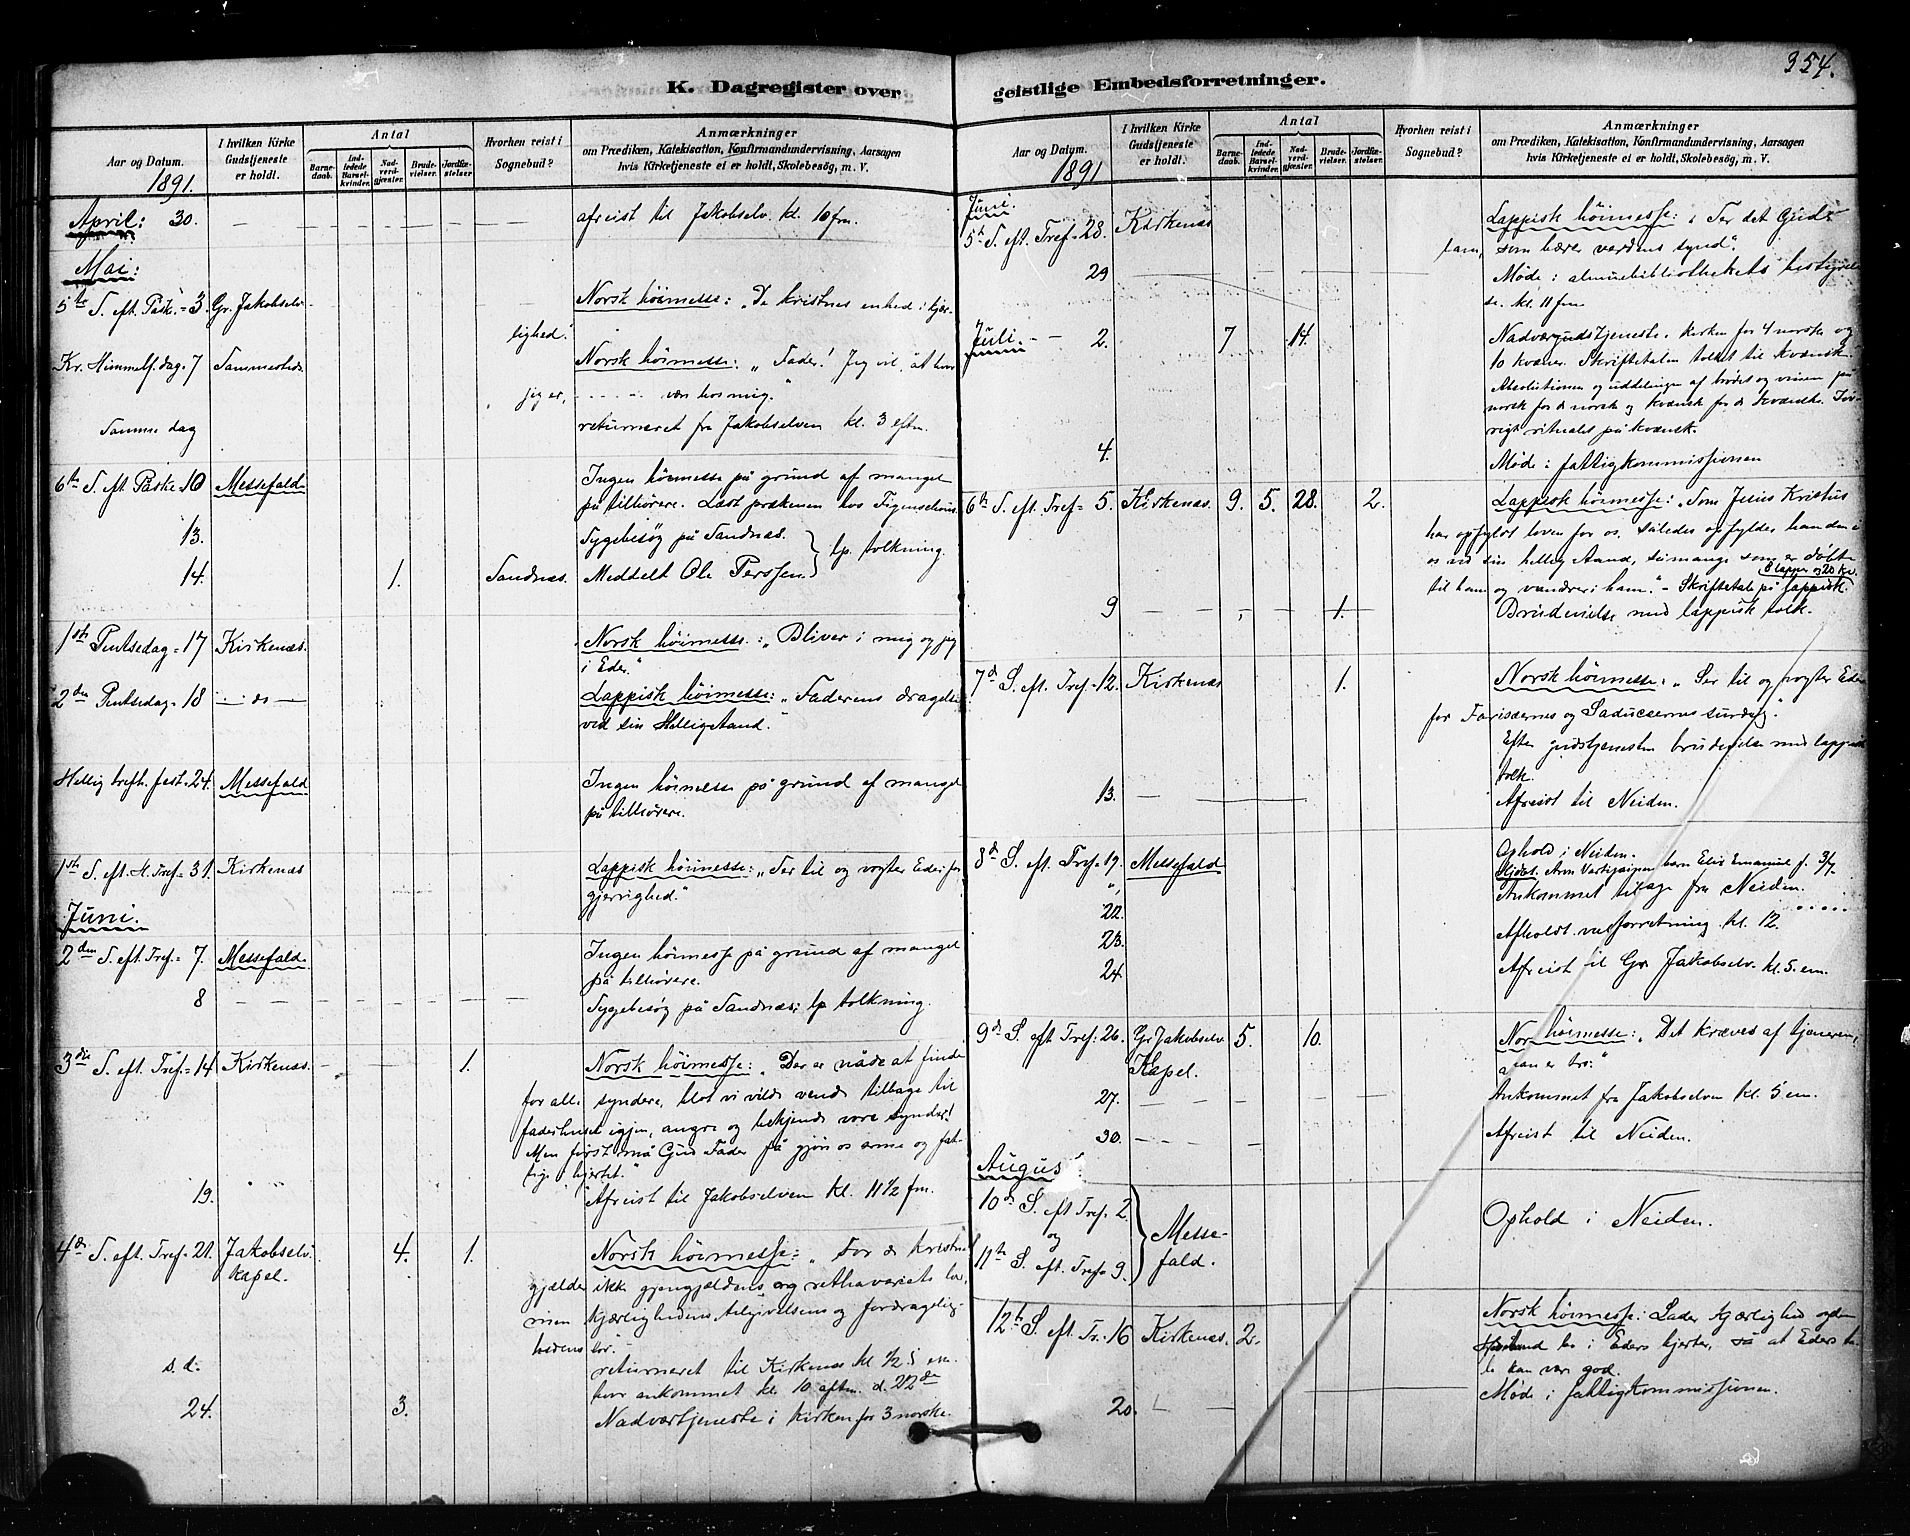 354.
K. Dagregister over geistlige Embedsforretninger.
Aar og Datum. 1891.
I hvilken Kirke Gudstjeneste er holdt.
Antal
Barnedaab.
Indledede Barselkvinder.
Nadverdgjæster.
Brudevielser.
Jordfæstelser.
Hvorhen reist i Sognebud?
Anmærkninger
om Prædiken, Katekisation, Konfirmandundervisning, Aarsagen
hvis Kirketjeneste ei er holdt, Skolebesög, m. V.
April: 30. afreist til Jakobselv. kl. 10 fm.
Mai:
5te S. eft. Paske = 3. Gr. Jakobselv Norsk höimesse: „De kristnes enhed i kjær-
lighed."
Kr. Himmelf. dag = 7 Sammesteds Norsk höimesse: „Fader! Jeg vil, at hvor
jeg er, - - - - - være hos mig."
Samme dag returneret fra Jakobselven kl. 3 eftm.
6te S. eft. Paske 10 Messefald Ingen höimesse på grund af mangel
på tilhörere. Læst prækenen hos Figenschous.
13. Sygebesög på Sandnæs. } lp. tolkning.
14. 1. Sandnæs. Meddelt Ole Perssen.
1ste Pentsedag = 17 Kirkenæs. Norsk höimesse: „Bliver i mig og jeg
i Eder."
2den Pentsedag = 18 — do — Lappisk höimesse: „Faderens dragelse
ved sin Helligaand."
Hellig trefh. fest = 24. Messefald Ingen höimesse på grund af mangel
på tilhörere.
1ste S. eft. H. Tref = 31. Kirkenæs Lappisk höimesse: „Ser til og vogter Eder for
gjerrighed."
Juni.
2den S. eft. Tref. = 7. Messefald. Ingen höimesse på grund af mangel
på tilhörere.
8 Sygebesög på Sandnæs; lp tolkning.
3die S. eft. Tref = 14 Kirkenæs. 1. Norsk höimesse: „Der er nåde at finde
for alle syndere, blot vi vilde vende tilbage til
faderhuset igjen, angre og bekjende vore synder!
Men först må Gud Fader få gjöre os arme og fat-
tige i hjertet."
19. Afreist til Jakobselven kl. 11 1/2 fm.
4de S. eft. Tref = 21. Jakobselv. kapel. 4. 1. Norsk höimesse: „For de kristne
gjælder ikke gjengjældens og rethaveriets lov,
men kjærlighedens, tilgivelsens og fordragelig-
hedens lov."
s. d. returneret til Kirkenæs kl. 1/2 5 em.
hvor ankommet kl. 10 aften d. 22de
24. 3. Nadværtjeneste i Kirken for 3 norske.
Aar og Datum. 1891
I hvilken Kirke Gudstjeneste er holdt.
Antal
Barnedaab.
Indledede Barselkvinder.
Nadverdgjæster.
Brudevielser.
Jordfæstelser.
Hvorhen reist i Sognebud?
Anmærkninger
om Prædiken, Katekisation, Konfirmandundervisning, Aarsagen
hvis Kirketjeneste ei er holdt, Skolebesög, m. V.
Juni.
5te S. eft. Tref = 28. Kirkenæs Lappisk höimesse: „Ser det Guds
lam, som bærer verdens synd".
29 Møde i almuebibliothekets bestyrel-
se. kl. 11 fm.
Juli. 2. 7 14. Nadværgudstjeneste i kirken for 4 norske og
10 kvæner. Skriftetalen tolket til kvænsk.
Absolutionen og uddelingen af brödet og vinen på
norsk for de norske og kvænsk for de kvænske. Iöv-
rigt ritualet på kvænsk.
4. Møde i fattigkommissionen
6te S. eft. Tref = 5. Kirkenæs. 9. 5. 28. 2. Lappisk höimesse: „Som Jesus Kristus
har opfyldt loven for os, således opfylder han den i
os ved sin hellig Aand, såmange som er döbte
til ham og vandrer i ham." - Skriftetale på lappisk.
8 lapper og 20 kv.
9 1. Brudevielse med lappisk tolk.
7de S. eft. Tref = 12. Kirkenæs 1. Norsk höimesse: „Ser til og vogter Eder
for Farisæernes og Saducæernes surdeig."
Efter gudstjenesten brudevielse med lappisk
tolk.
13. Afreist til Neiden.
8de S. eft. Tref = 19. Messefald Ophold i Neiden.
Hjdöbt. barn Elis Emanuel f. 3/7
22. Ankommet tilbage fra Neiden.
23. Afholdt valforretning kl. 12.
24. Afreist til Gr. Jakobselv. kl. 5. em.
9de S. eft Tref = 26. Gr. Jakobselv. Kapel. 5. 10. Norsk höimesse: „Det kræves af tjeneren,
at han er tro."
27. Ankommet fra Jakobselven kl. 5 em.
30. Afreist til Neiden.
August.
10de S. eft Tref = 2.
og } Messefald. Ophold i Neiden.
11te S. eft. Tref = 9.
12te S. eft. Tr. = 16 Kirkenæs. 2. Norsk höimesse: Lader kjærlighed og den
Helligaand bo i Eders hjerter, så at Eders ta-
le kan være god.
20. Møde i fattigkommissionen.